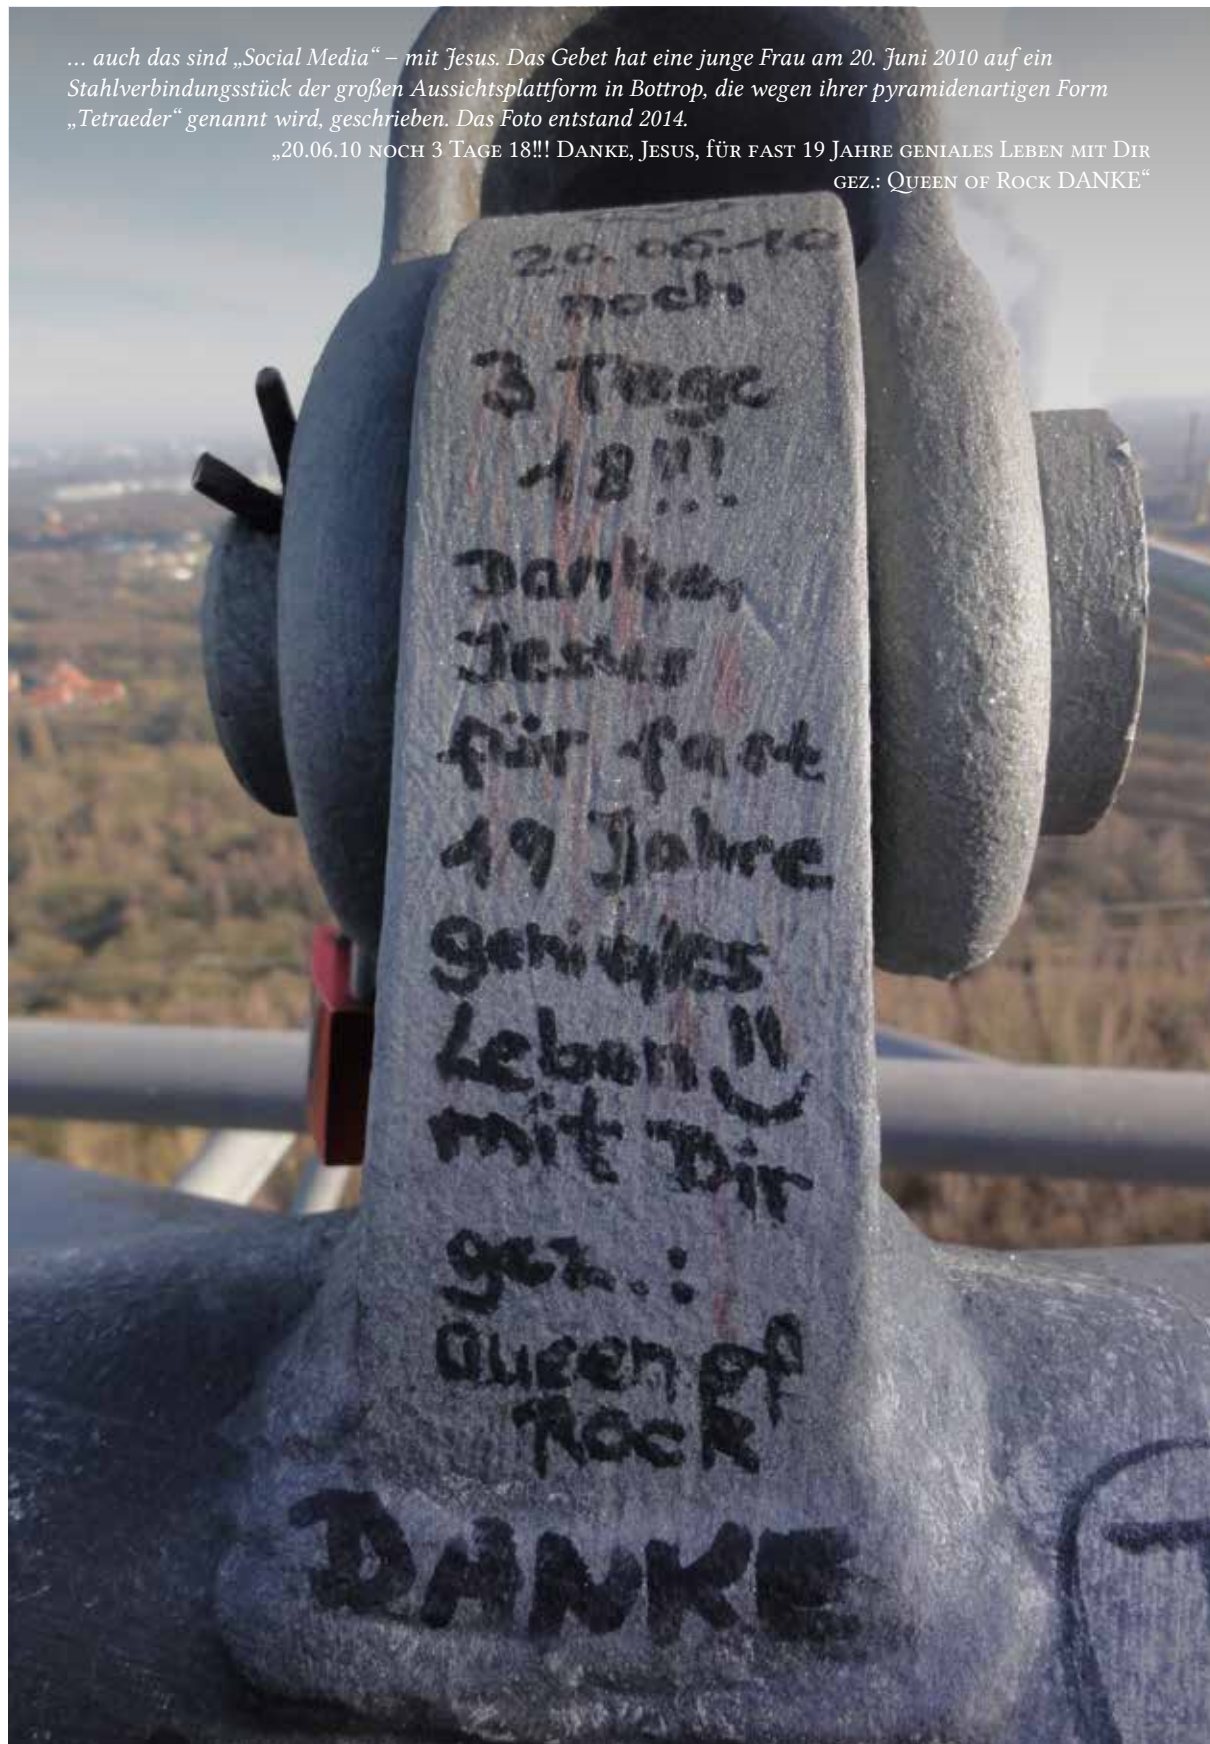 … auch das sind „Social Media“ – mit Jesus. Das Gebet hat eine junge Frau am 20. Juni 2010 auf ein
Stahlverbindungsstück der großen Aussichtsplattform in Bottrop, die wegen ihrer pyramidenartigen Form
„Tetraeder“ genannt wird, geschrieben. Das Foto entstand 2014.
„20.06.10 NOCH 3 TAGE 18!!! DANKE, JESUS, FÜR FAST 19 JAHRE GENIALES LEBEN MIT DIR
GEZ.: QUEEN OF ROCK DANKE“
20.06.10
noch
3 Tage
18!!!
Danke,
Jesus
für fast
19 Jahre
geniales
Leben
mit Dir
gez.:
Queen of
Rock
DANKE